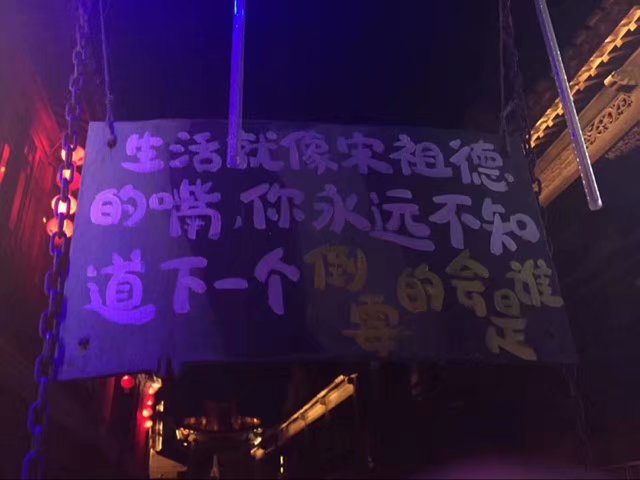 生活就像宋祖德
的嘴,你永远不知
道下一个倒霉的会是谁